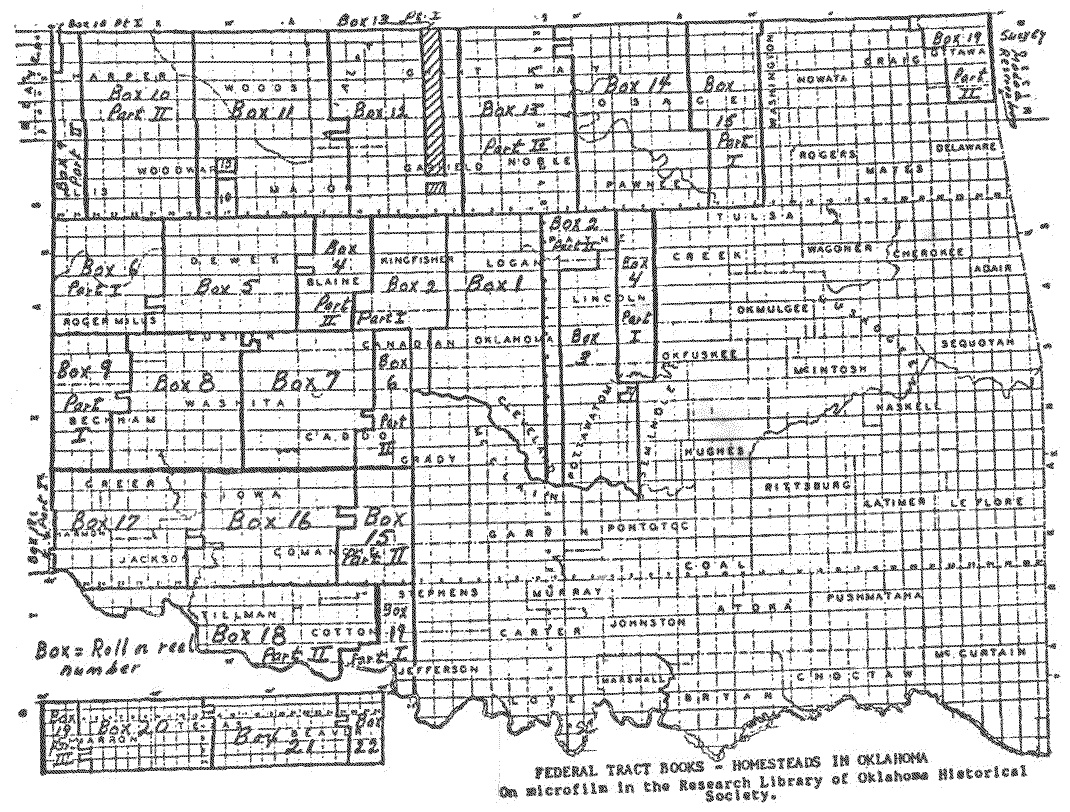 Box 10 Pt I
Box 13 Pt. I
Box 19
Part
II
OTTAWA
CRAIG
NOWATA
WASHINGTON
HARPER
Box 10
Part II
WOODS
Box 11
Box 12
KAY
Box 13
Part II
Box 14
OSAGE
Box
15
Part
I
WOODWARD
13
10
MAJOR
GARFIELD
NOBLE
PAWNEE
ROGERS
MAYES
DELAWARE
Box 6
Part I
ROGER MILLS
DEWEY
Box 5
Box
4
BLAINE
Part
II
KINGFISHER
Box 2
Part I
LOGAN
Box 1
Box 2
Part II
Box
4
Part
I
LINCOLN
TULSA
CREEK
WAGONER
CHEROKEE
ADAIR
OKMULGEE
MUSKOGEE
SEQUOYAH
CUSTER
CANADIAN
OKLAHOMA
OKFUSKEE
MCINTOSH
HASKELL
Box 9
Part
I
BECKHAM
Box 8
WASHITA
Box 7
CADDO
Box
6
Part
II
GRADY
CLEVELAND
MCCLAIN
POTTAWATOMIE
SEMINOLE
HUGHES
PITTSBURG
LATIMER
LE FLORE
GREER
KIOWA
Box 17
HARMON
JACKSON
Box 16
COMANCHE
Box
15
Part II
GARVIN
PONTOTOC
COAL
STEPHENS
MURRAY
ATOKA
PUSHMATAHA
TILLMAN
Box 18
Part II
COTTON
Box
19
Part I
CARTER
JOHNSTON
JEFFERSON
MARSHALL
LOVE
BRYAN
CHOCTAW
MCCURTAIN
Box = Roll or reel
number
Box
19
Pt.
III
Box 20
CIMARRON
TEXAS
Box
21
BEAVER
Box
22
FEDERAL TRACT BOOKS - HOMESTEADS IN OKLAHOMA
On microfilm in the Research Library of Oklahoma Historical
Society.